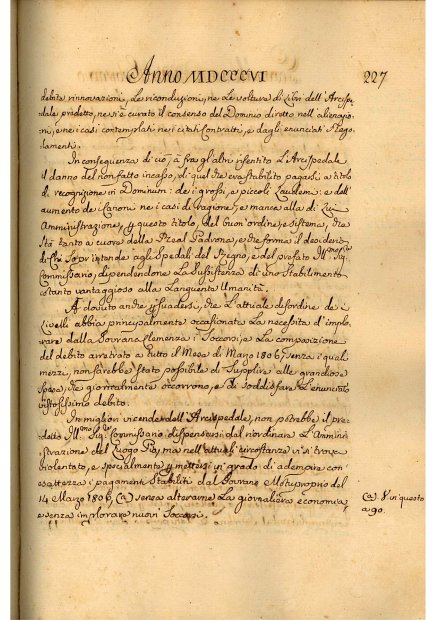 Anno MDCCCVI 227
debite rinnovazioni, Le riconduzioni, ne Le volture di Libri dell' Arcispe-
dale predetto, ne si è curato il consenso del Dominio diretto nell' alienagio-
ni, e ne i casi contemplati nei citati Contratti, e dagli enunciati Rego-
lamenti.
In conseguenza di ciò, à fra gl' altri risentito L'Arcispedale
il danno del non fatto incasso, di quel che era stabilito pagarsi a titolo
di recognizione in Dominum: de i grossi, e piccoli Laudemi: e dell'
aumento de i Canoni ne i casi di ragione; e manca alla di Lui
Amministrazione, p questo titolo, del buon' ordine, e sistema, che
stà tanto a cuore della Real Padrona, e che forma il desiderio
di chi soprintende agli Spedali del Regno, e del prefato Ill. Sig.
Commissario, dipendendone La sussistenza di uno Stabilimento
cotanto vantaggioso alla Languente Umanità.
A dovuto anche persuadersi, che L'attuale disordine de i
Livelli abbia principalmente occasionata La necessità d'implo-
rare dalla Sovrana Clemenza i Soccorsi, e La composizione
del debito arretrato a tutto il Mese di Marzo 1806, senza i quali
mezzi, non sarebbe stato possibile di supplire alle grandiose
spese, che giornalmente occorrono, e di soddisfare L'enunciato
vistosissimo debito.
In migliori vicende dell' Arcispedale, non potrebbe il pre-
detto Ill.mo Sig.re Commissario dispensarsi dal riordinare L'Ammini-
strazione del Luogo Pio, ma nell' attuali circostanze vi si trova
violentato, e specialmente p mettersi in grado di adempire con
esattezza i pagamenti stabiliti dal Sovrano Motuproprio del
14 Marzo 1806, (a) senza alterarne La giornaliera economia,
e senza implorare nuovi Soccorsi.
(a) V. in questo
a 90.